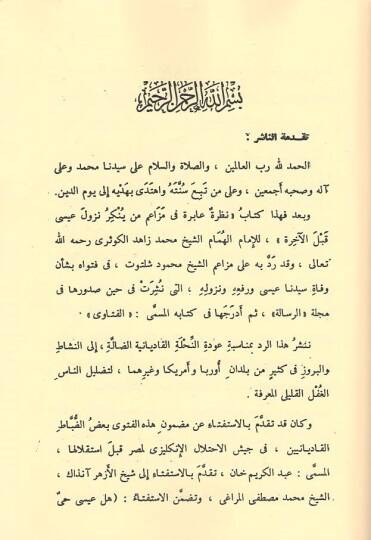 بسم الله الرحمن الرحيم
تقدمة الناشر :
الحمد لله رب العالمين ، والصلاة والسلام على سيدنا محمد وعلى
آله وصحبه أجمعين ، وعلى من تَبِعَ سُنَّتَهُ واهتَدَى بهَدْيِه إلى يوم الدين.
وبعد فهذا كتابُ «نظرةٌ عابرة في مَزاعِم من يُنْكِرُ نزولَ عيسى
قَبْلَ الآخِرة» ، للإمام الهُمَام الشيخ محمد زاهد الكوثري رحمه الله
تعالى ، وقد رَدَّ به على مزاعم الشيخ محمود شلتوت ، في فتواه بشأن
وفاةِ سيدنا عيسى ورفعِهِ ونزولِهِ ؛ التي نُشِرَتْ في حين صدورها في
مجلة «الرسالة» ، ثم أَدرَجَها في كتابه المسمَّى : «الفتاوى» .
ننشرُ هذا الرد بمناسبةِ عودةِ النِّحْلَةِ القاديانية الضالَّةِ، إلى النشاطِ
والبروزِ في كثيرٍ من بلدان أوربا وأمريكا وغيرِهما ، لتضليل الناس
الغُفْل القليلي المعرفة .
وكان قد تقدَّمَ بالاستفتاء عن مضمونِ هذه الفتوى بعضُ الضُّبَّاطِ
القاديانيين ، في جيش الاحتلال الإنكليزي لمصر قبلَ استقلالها ،
المسمَّى : عبد الكريم خان ، تقدَّمَ بالاستفتاء إلى شيخ الأزهر آنذاك ،
الشيخ محمد مصطفى المراغي ، وتضمَّن الاستفتاءُ : (هل عيسى حيٌّ